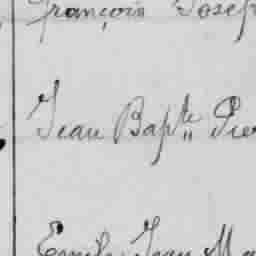 François Josep
Jean Bapte Pier
Emile Jean Ma